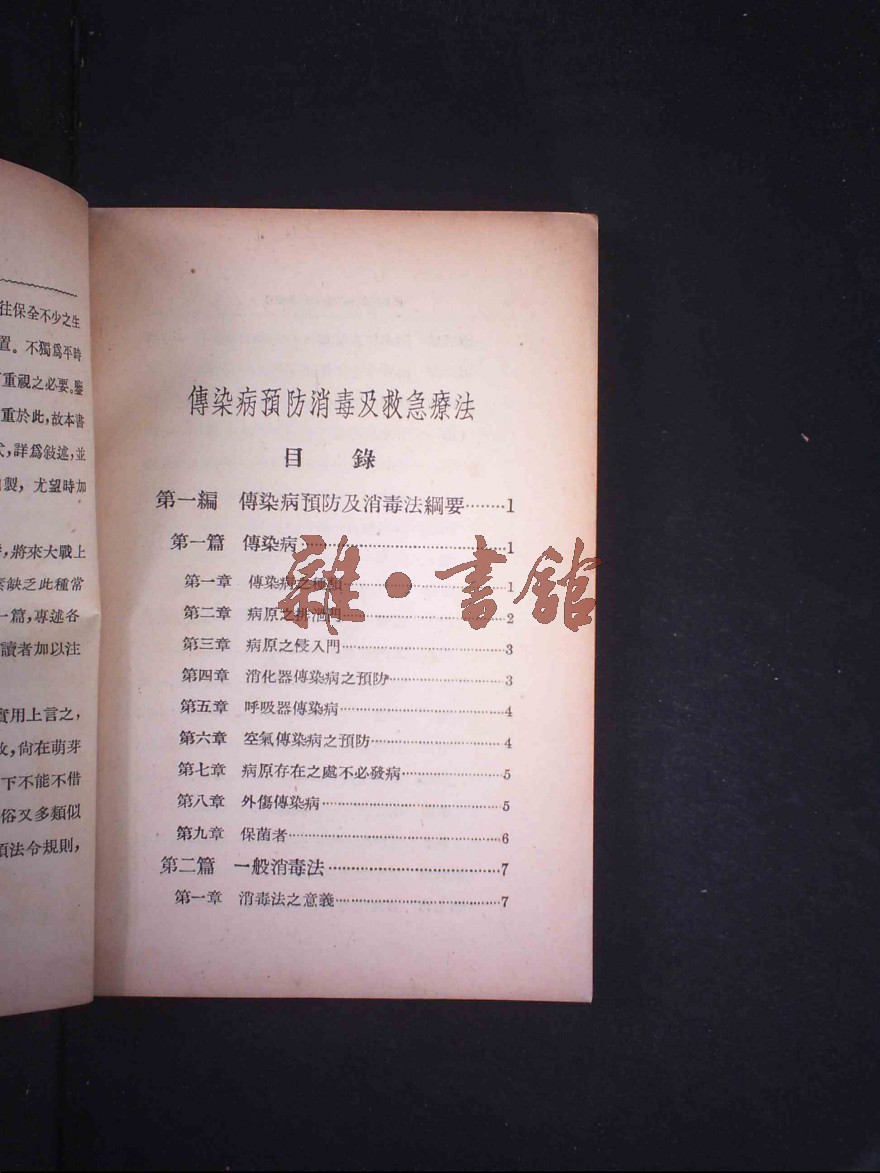 往保全不少之生
置。不獨爲平時
重視之必要。鑒
重於此，故本書
式，詳爲敍述，並
製，尤望時加
，將來大戰上
缺乏此種常
一篇，專述各
讀者加以注
實用上言之，
，尙在萌芽
下不能不借
俗又多類似
法令規則，
傳染病預防消毒及救急療法
目　錄
第一編　傳染病預防及消毒法綱要········1
第一篇　傳染病········1
第一章　傳染病之種類········1
第二章　病原之排泄門········2
第三章　病原之侵入門········3
第四章　消化器傳染病之預防········3
第五章　呼吸器傳染病········4
第六章　空氣傳染病之預防········4
第七章　病原存在之處不必發病········5
第八章　外傷傳染病········5
第九章　保菌者········6
第二篇　一般消毒法········7
第一章　消毒法之意義········7
雜·書館